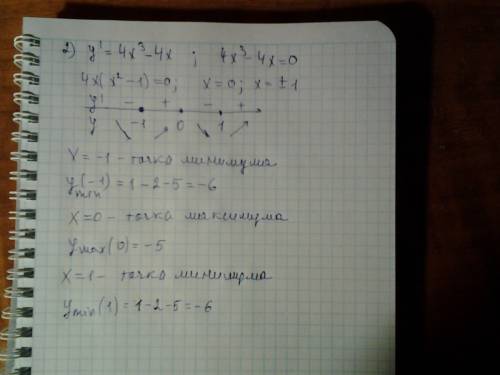 2) y' = 4x³-4x ; 4x³-4x=0
4x(x²-1)=0; x=0; x=±1
y' - + - +
y ↘ -1 ↗ 0 ↘ 1 ↗
x=-1 - точка минимума
y min (-1) = 1-2-5=-6
x=0 - точка максимума
y max (0) = -5
x=1 - точка минимума
y min (1) = 1-2-5=-6